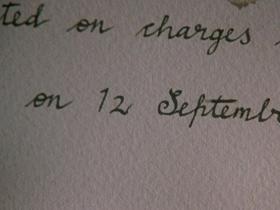 ted on charges
on 12 Septemb